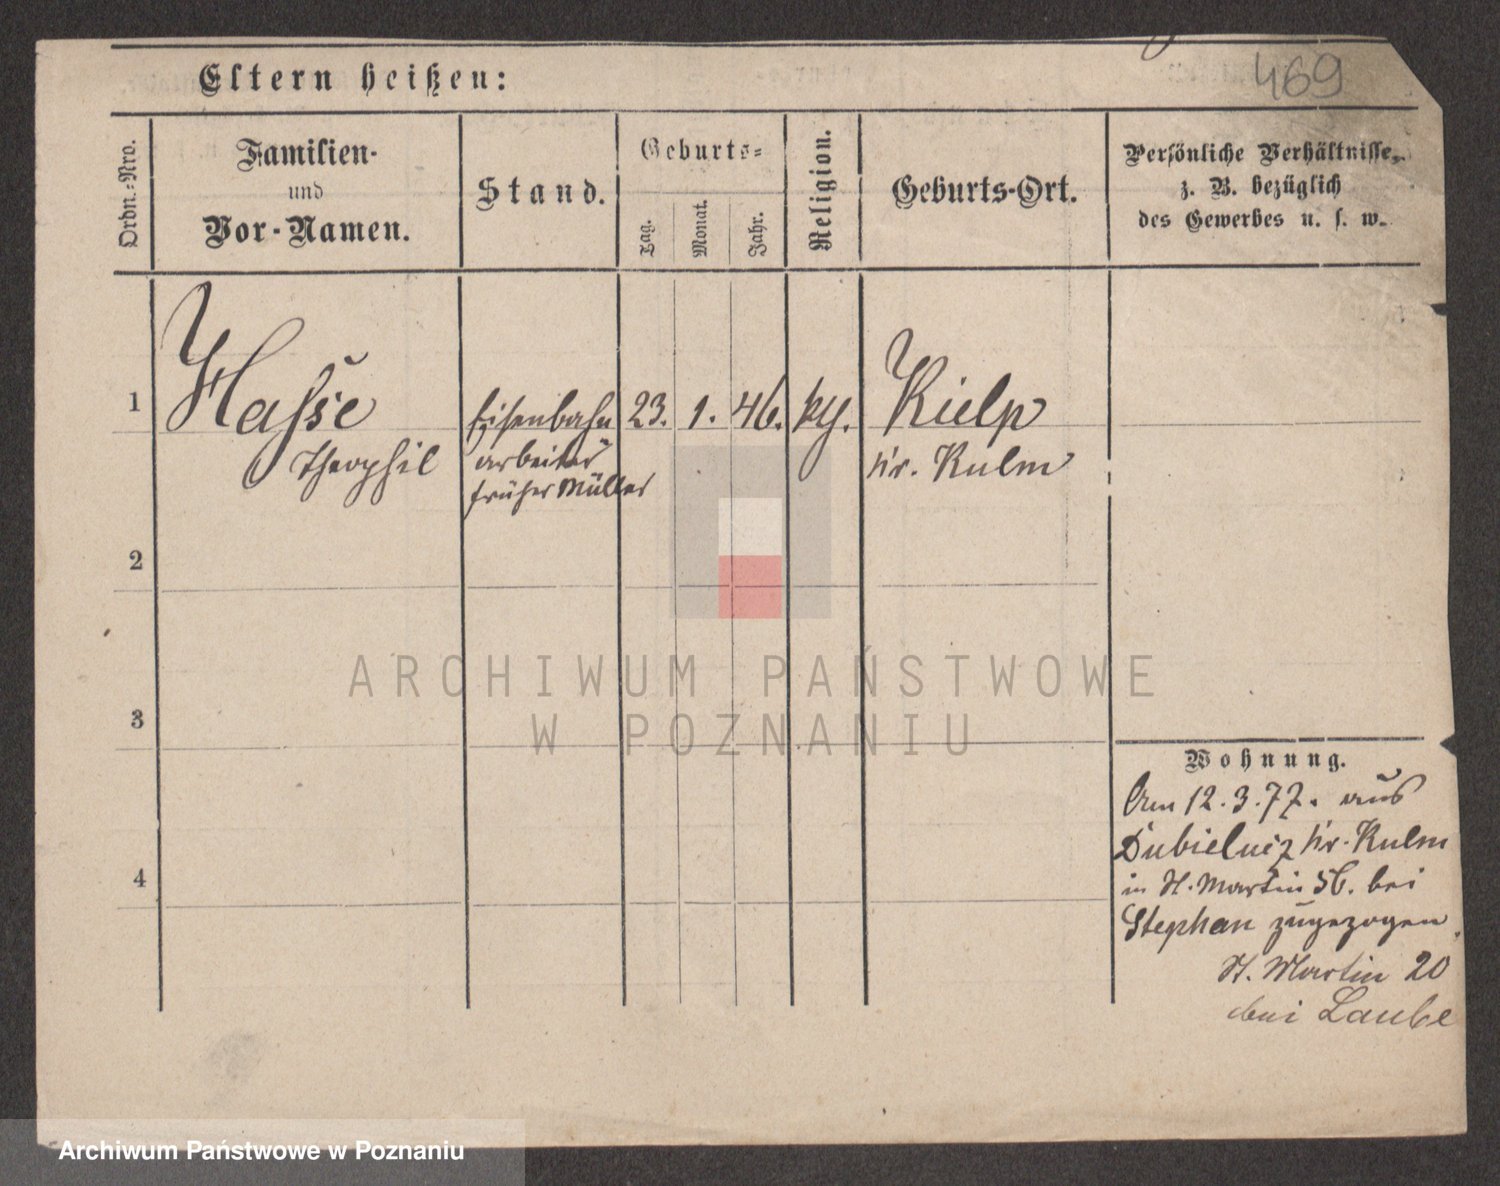 469
Eltern heißen:
Ordn.-Nro.
Familien-
und
Vor-Namen.
Stand.
Geburts-
Tag.
Monat.
Jahr.
Religion.
Geburts-Ort.
Persönliche Verhältnisse,
z. B. bezüglich
des Gewerbes u. s. w.
1
Hasse
Theophil
Eisenbahn
arbeiter
früher Müller
23.
1.
46.
Kielp
Kr. Kulm
2
3
4
Wohnung.
Am 12.3.77. aus
Dubielucz Kr. Kulm
in St. Martin 56. bei
Stephan zugezogen.
St. Martin 20
bei Laube
ARCHIWUM PAŃSTWOWE
W POZNANIU
Archiwum Państwowe w Poznaniu